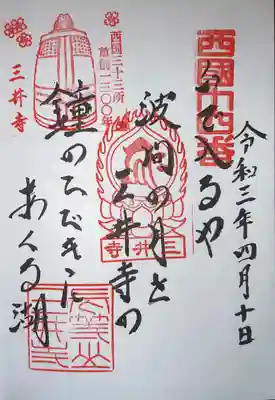 令和三年四月十日
西國十四番
いで入るや
波間の月を
三井寺の
鐘のひびきに
あくる湖
三井寺
西国三十三所
草創一三〇〇年
三井寺